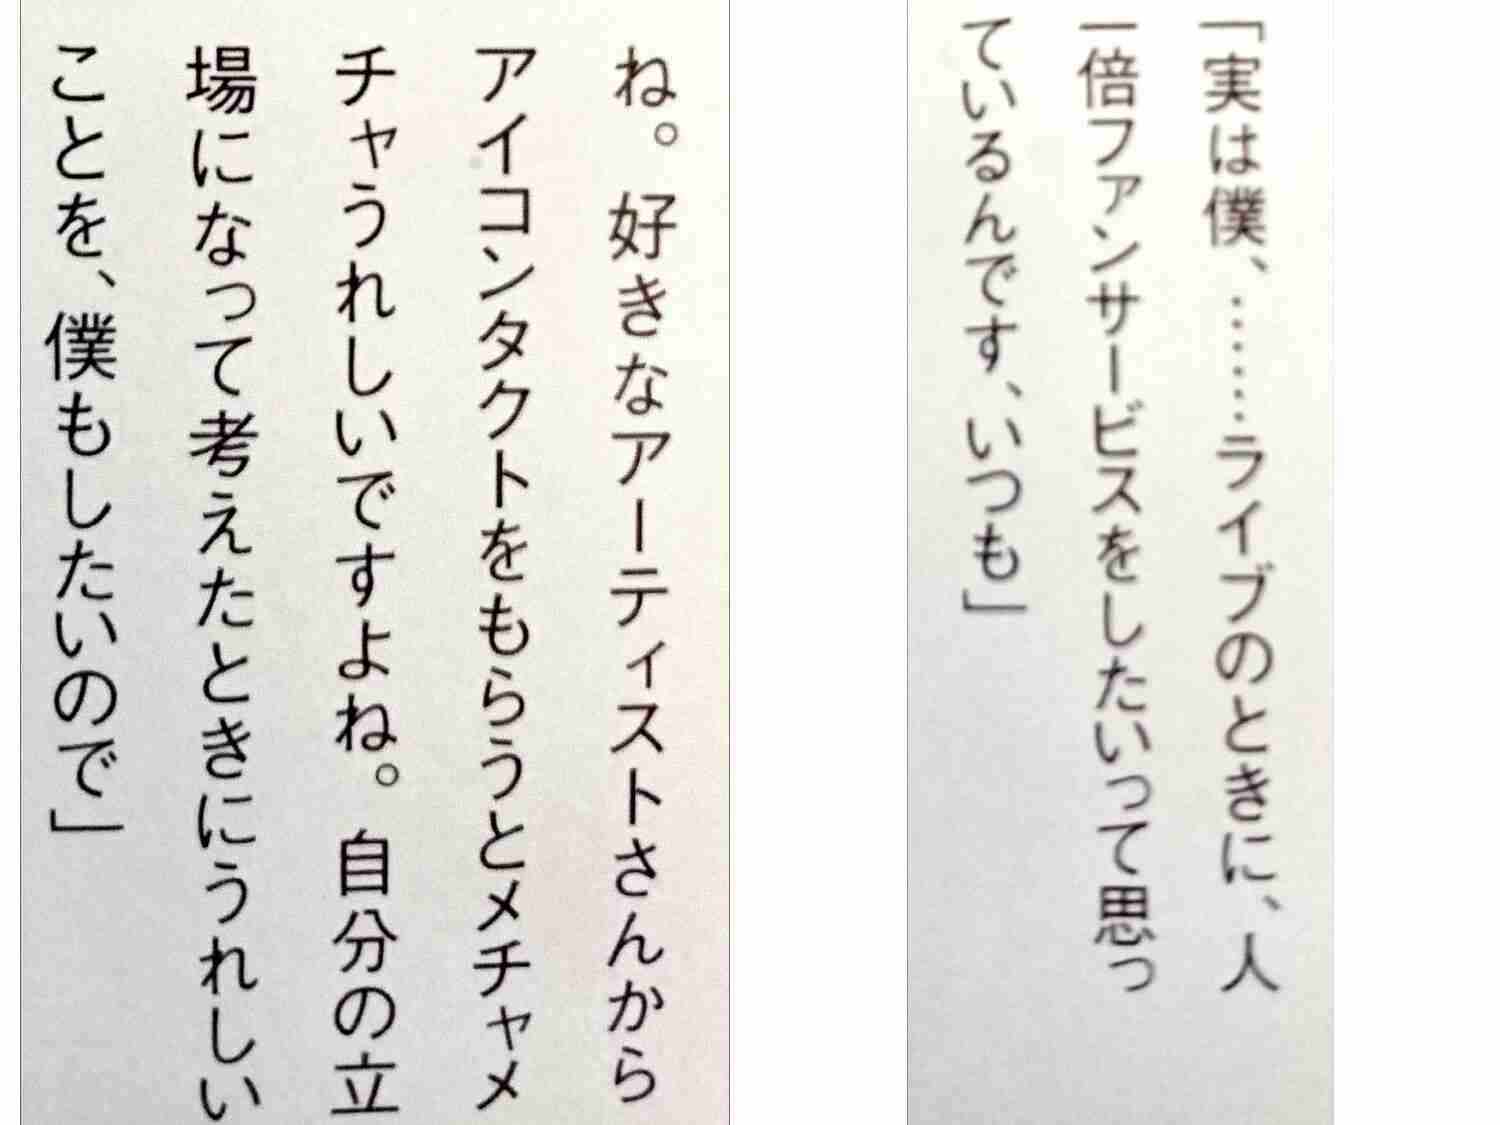 「実は僕、………ライブのときに、人
一倍ファンサービスをしたいって思っ
ているんです、いつも」
ね。好きなアーティストさんから
アイコンタクトをもらうとメチャメ
チャうれしいですよね。自分の立
場になって考えたときにうれしい
ことを、僕もしたいので」